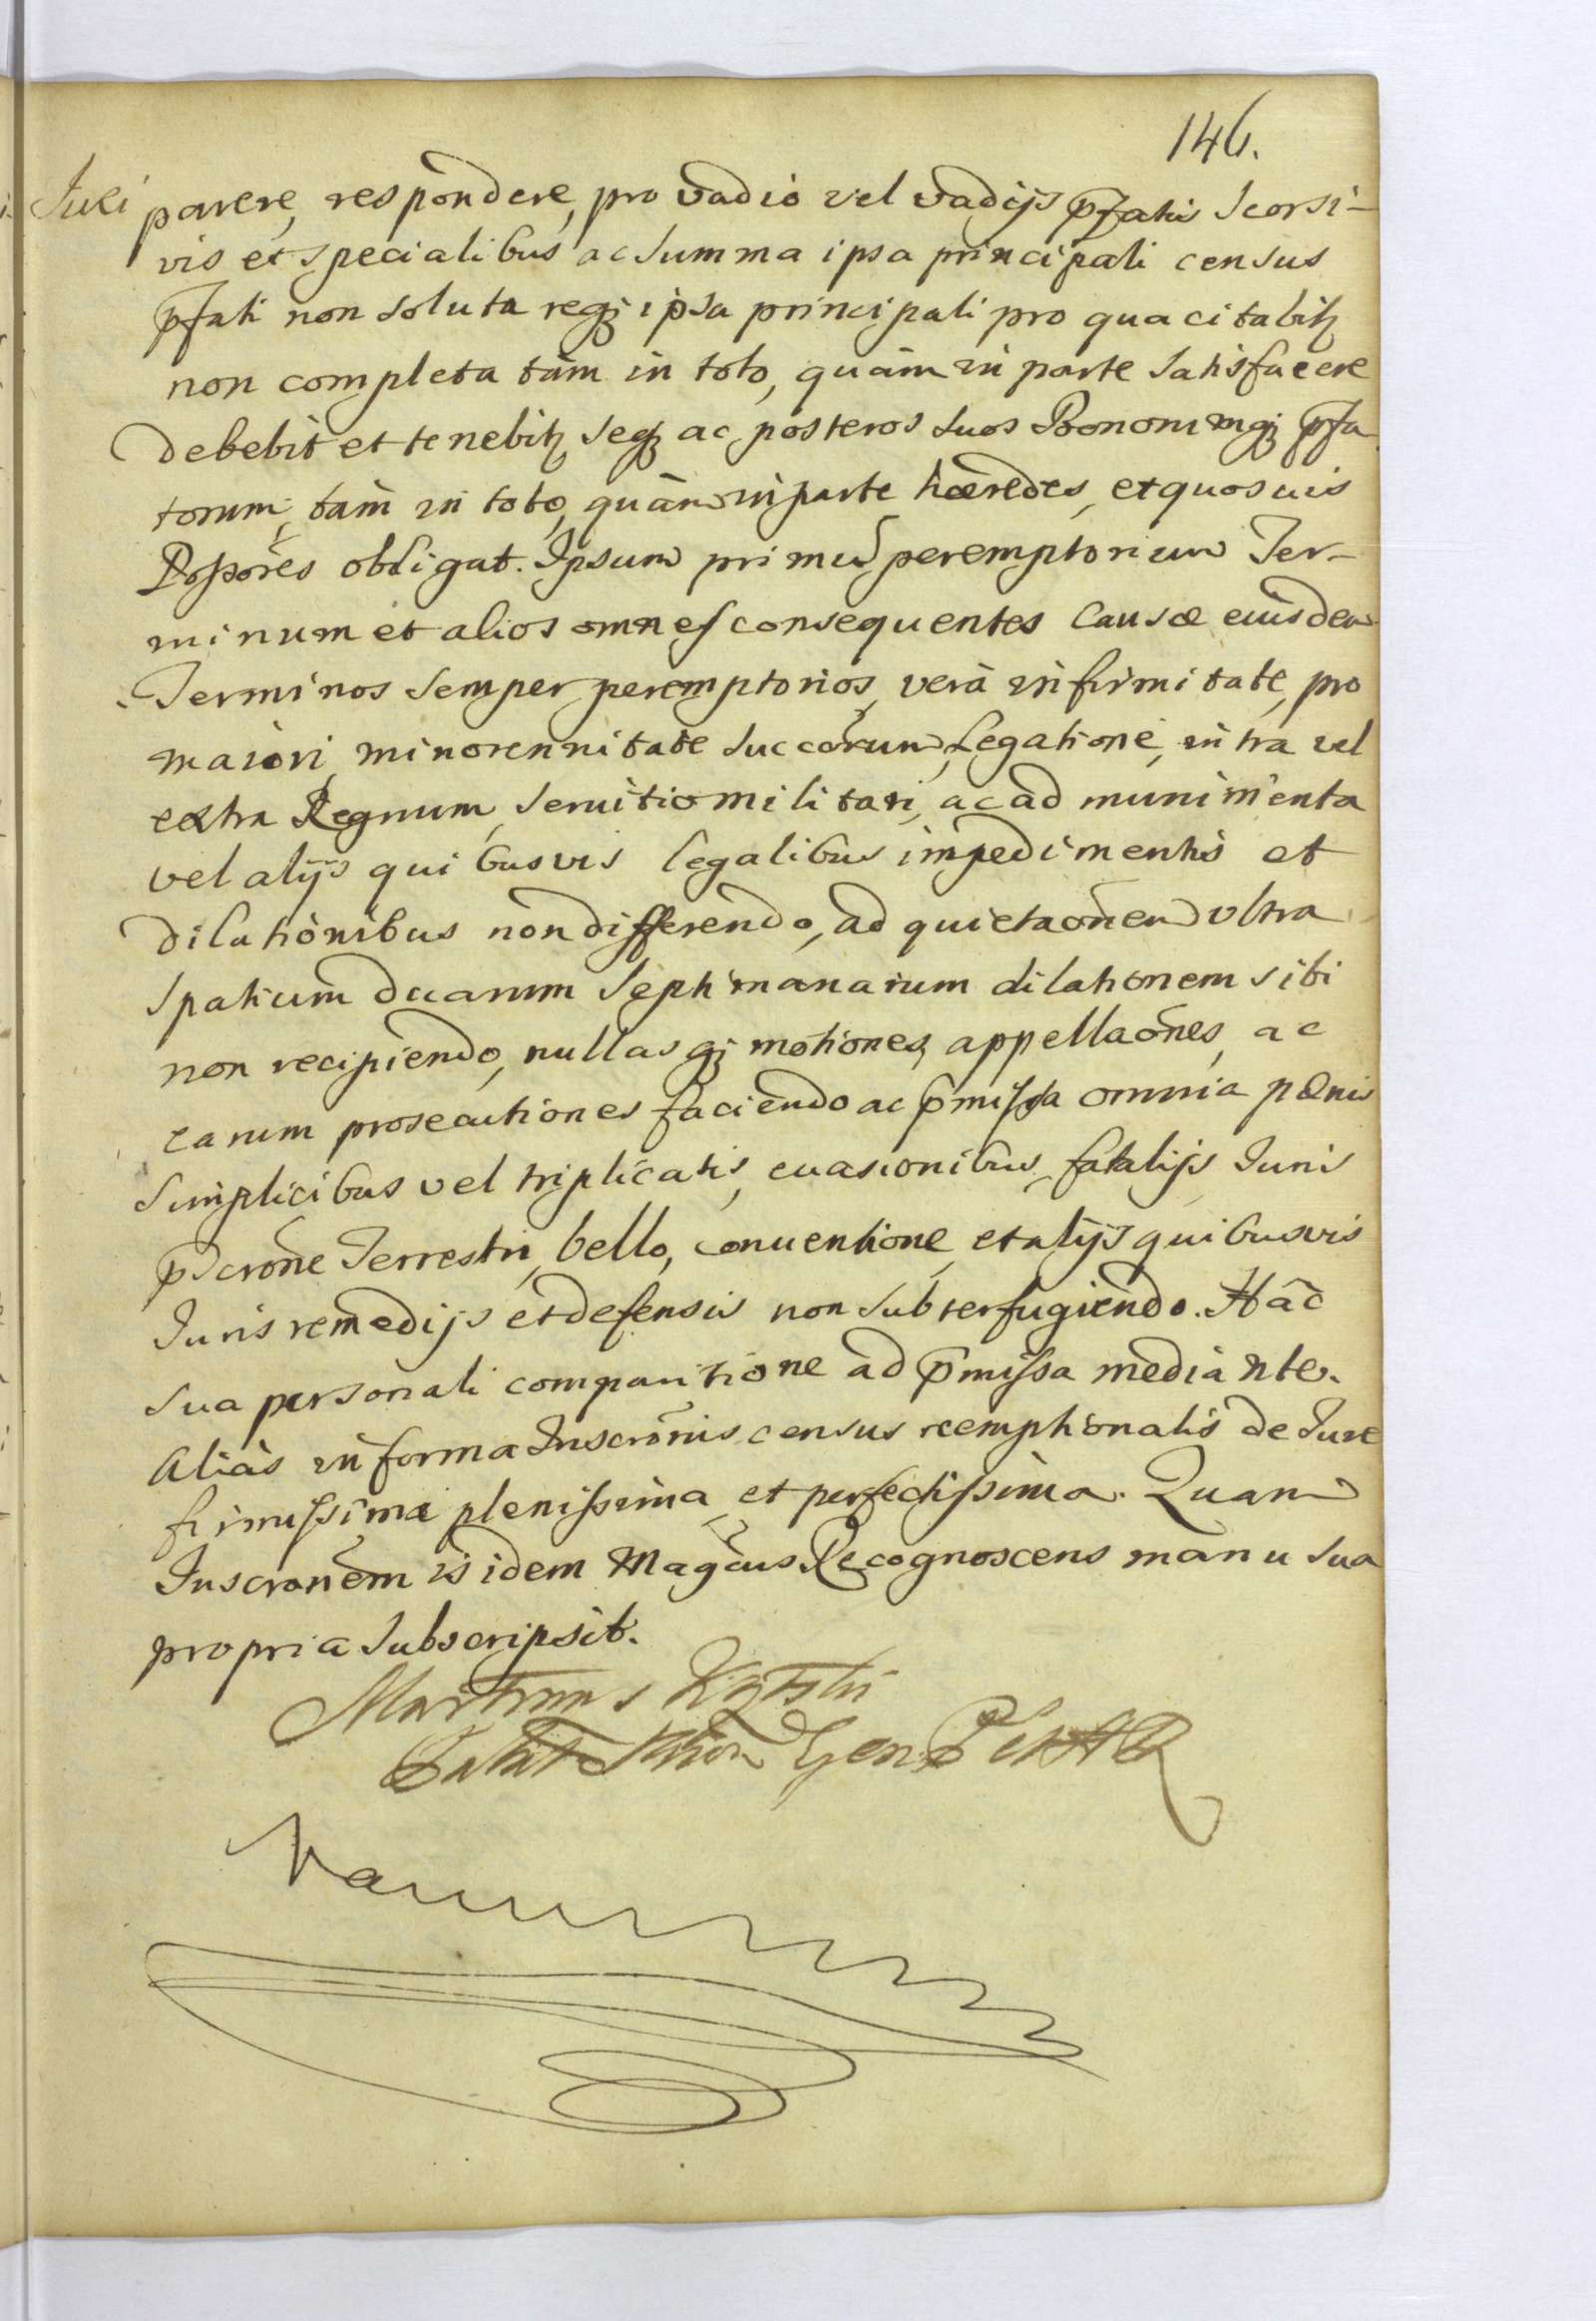 146.
Juri parere, respondere, pro vadio vel vadijs p̄fatis seorsi-
vis et specialibus ac summa ipsa principali census
p̄fati non soluta reqȝ ipsa principali pro qua citabitȝ
non completa tàm in toto, quàm in parte satisfacere
debebit et tenebitȝ seqȝ ac posteros suos Bonorumqȝ p̄fa
torum, tàm in toto, quàm in parte hæredes, et quosuis
Possores obligat. Ipsum primum peremptorium Ter-
minum et alios omnes consequentes Causæ eiusdem
Terminos semper peremptorios, verà infirmitate, pro
maiori, minorennitate succorum, Legatione, intra vel
extra Regnum, seruitio militari, ac ad munimenta
vel alijs quibusvis legalibus impedimentis et
dilationibus non differendo, ad quietaōnem vltra
spatium duarum septimanarum dilationem sibi
non recipiendo, nullasqȝ motiones, appellaōnes, ac
earum prosecutiones faciendo ac p̄missa omnia pænis
simplicibus vel triplicatis, euasionibus, fatalijs Juris
p̄scrōne Terrestri, bello, conuentione, et alijs quibusvis
Juris remedijs et defensis non subterfugiendo. Hac
sua personali comparitione ad p̄missa mediante.
Aliàs in forma Inscrōnis census reemptionalis de Jure
firmissima plenissima et perfectissima. Quam
Inscrōnem is idem Magcus Recognoscens manu sua
propria subscripsit.
Martinus